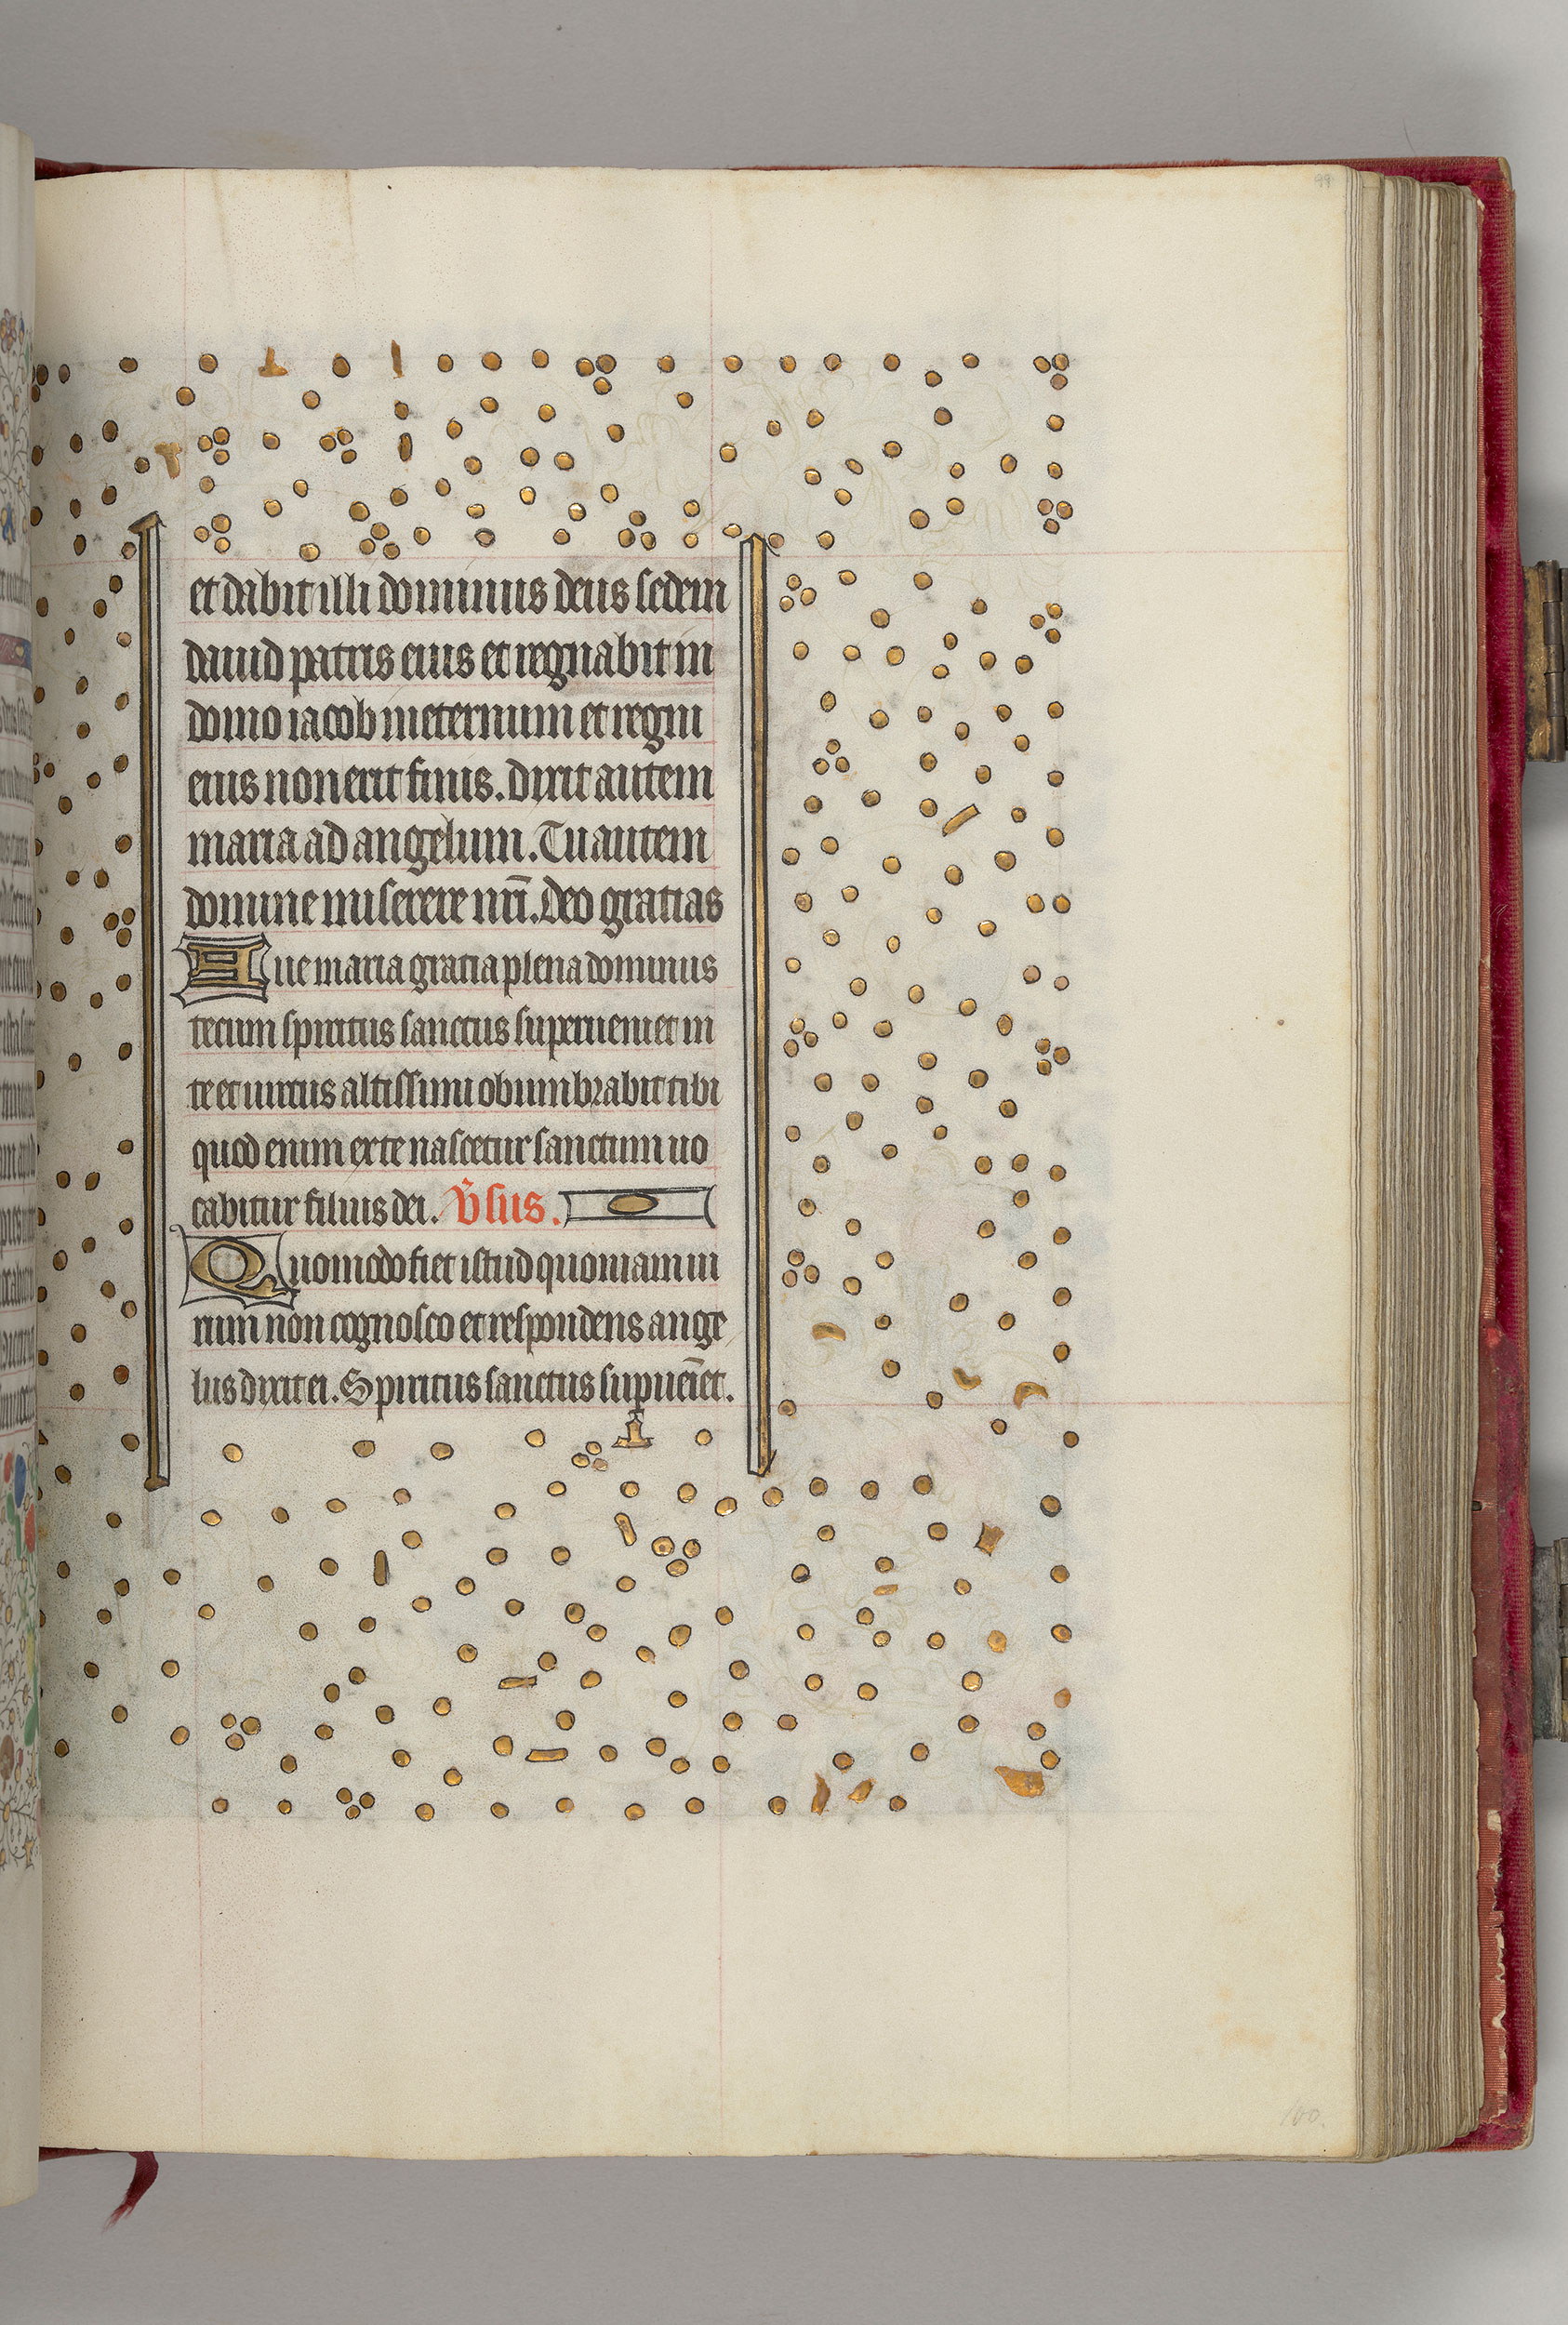 99
et dabit illi dominus deus sedem
dauid patris eius et regnabit in
domo iacob in eternum et regni
eius non erit finis. Dixit autem
maria ad angelum. Tu autem
domine miserere nr̄i. Deo gratias
Aue maria gratia plena dominus
tecum spiritus sanctus superueniet in
te et uirtus altissimi obumbrabit tibi
quod enim ex te nascetur sanctum uo
cabitur filius dei. v̄sus.
Quomodo fiet istud quoniam ui
rum non cognosco et respondens ange
lus dixit ei. Spiritus sanctus supueīet.
100.